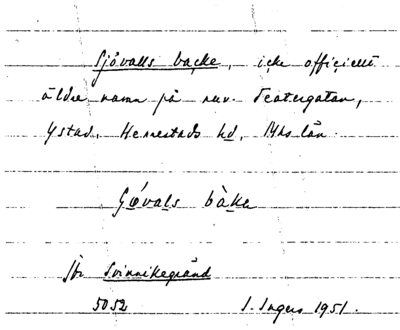 Sjövalls backe, icke officiellt
äldre namn på nuv. Teatergatan,
Ystad, Herrestads hd, Mhs län.
bàke
Jfr Svinnikegränd
5052 I. Ingers 1951.